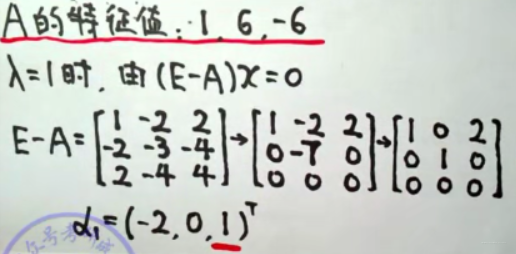 A的特征值:1,6,-6
λ=1时,由(E-A)x=0
E-A=[1 -2 2; -2 -3 -4; 2 -4 4]→[1 -2 2; 0 -7 0; 0 0 0]→[1 0 2; 0 1 0; 0 0 0]
α₁=(-2,0,1)ᵀ
众号考